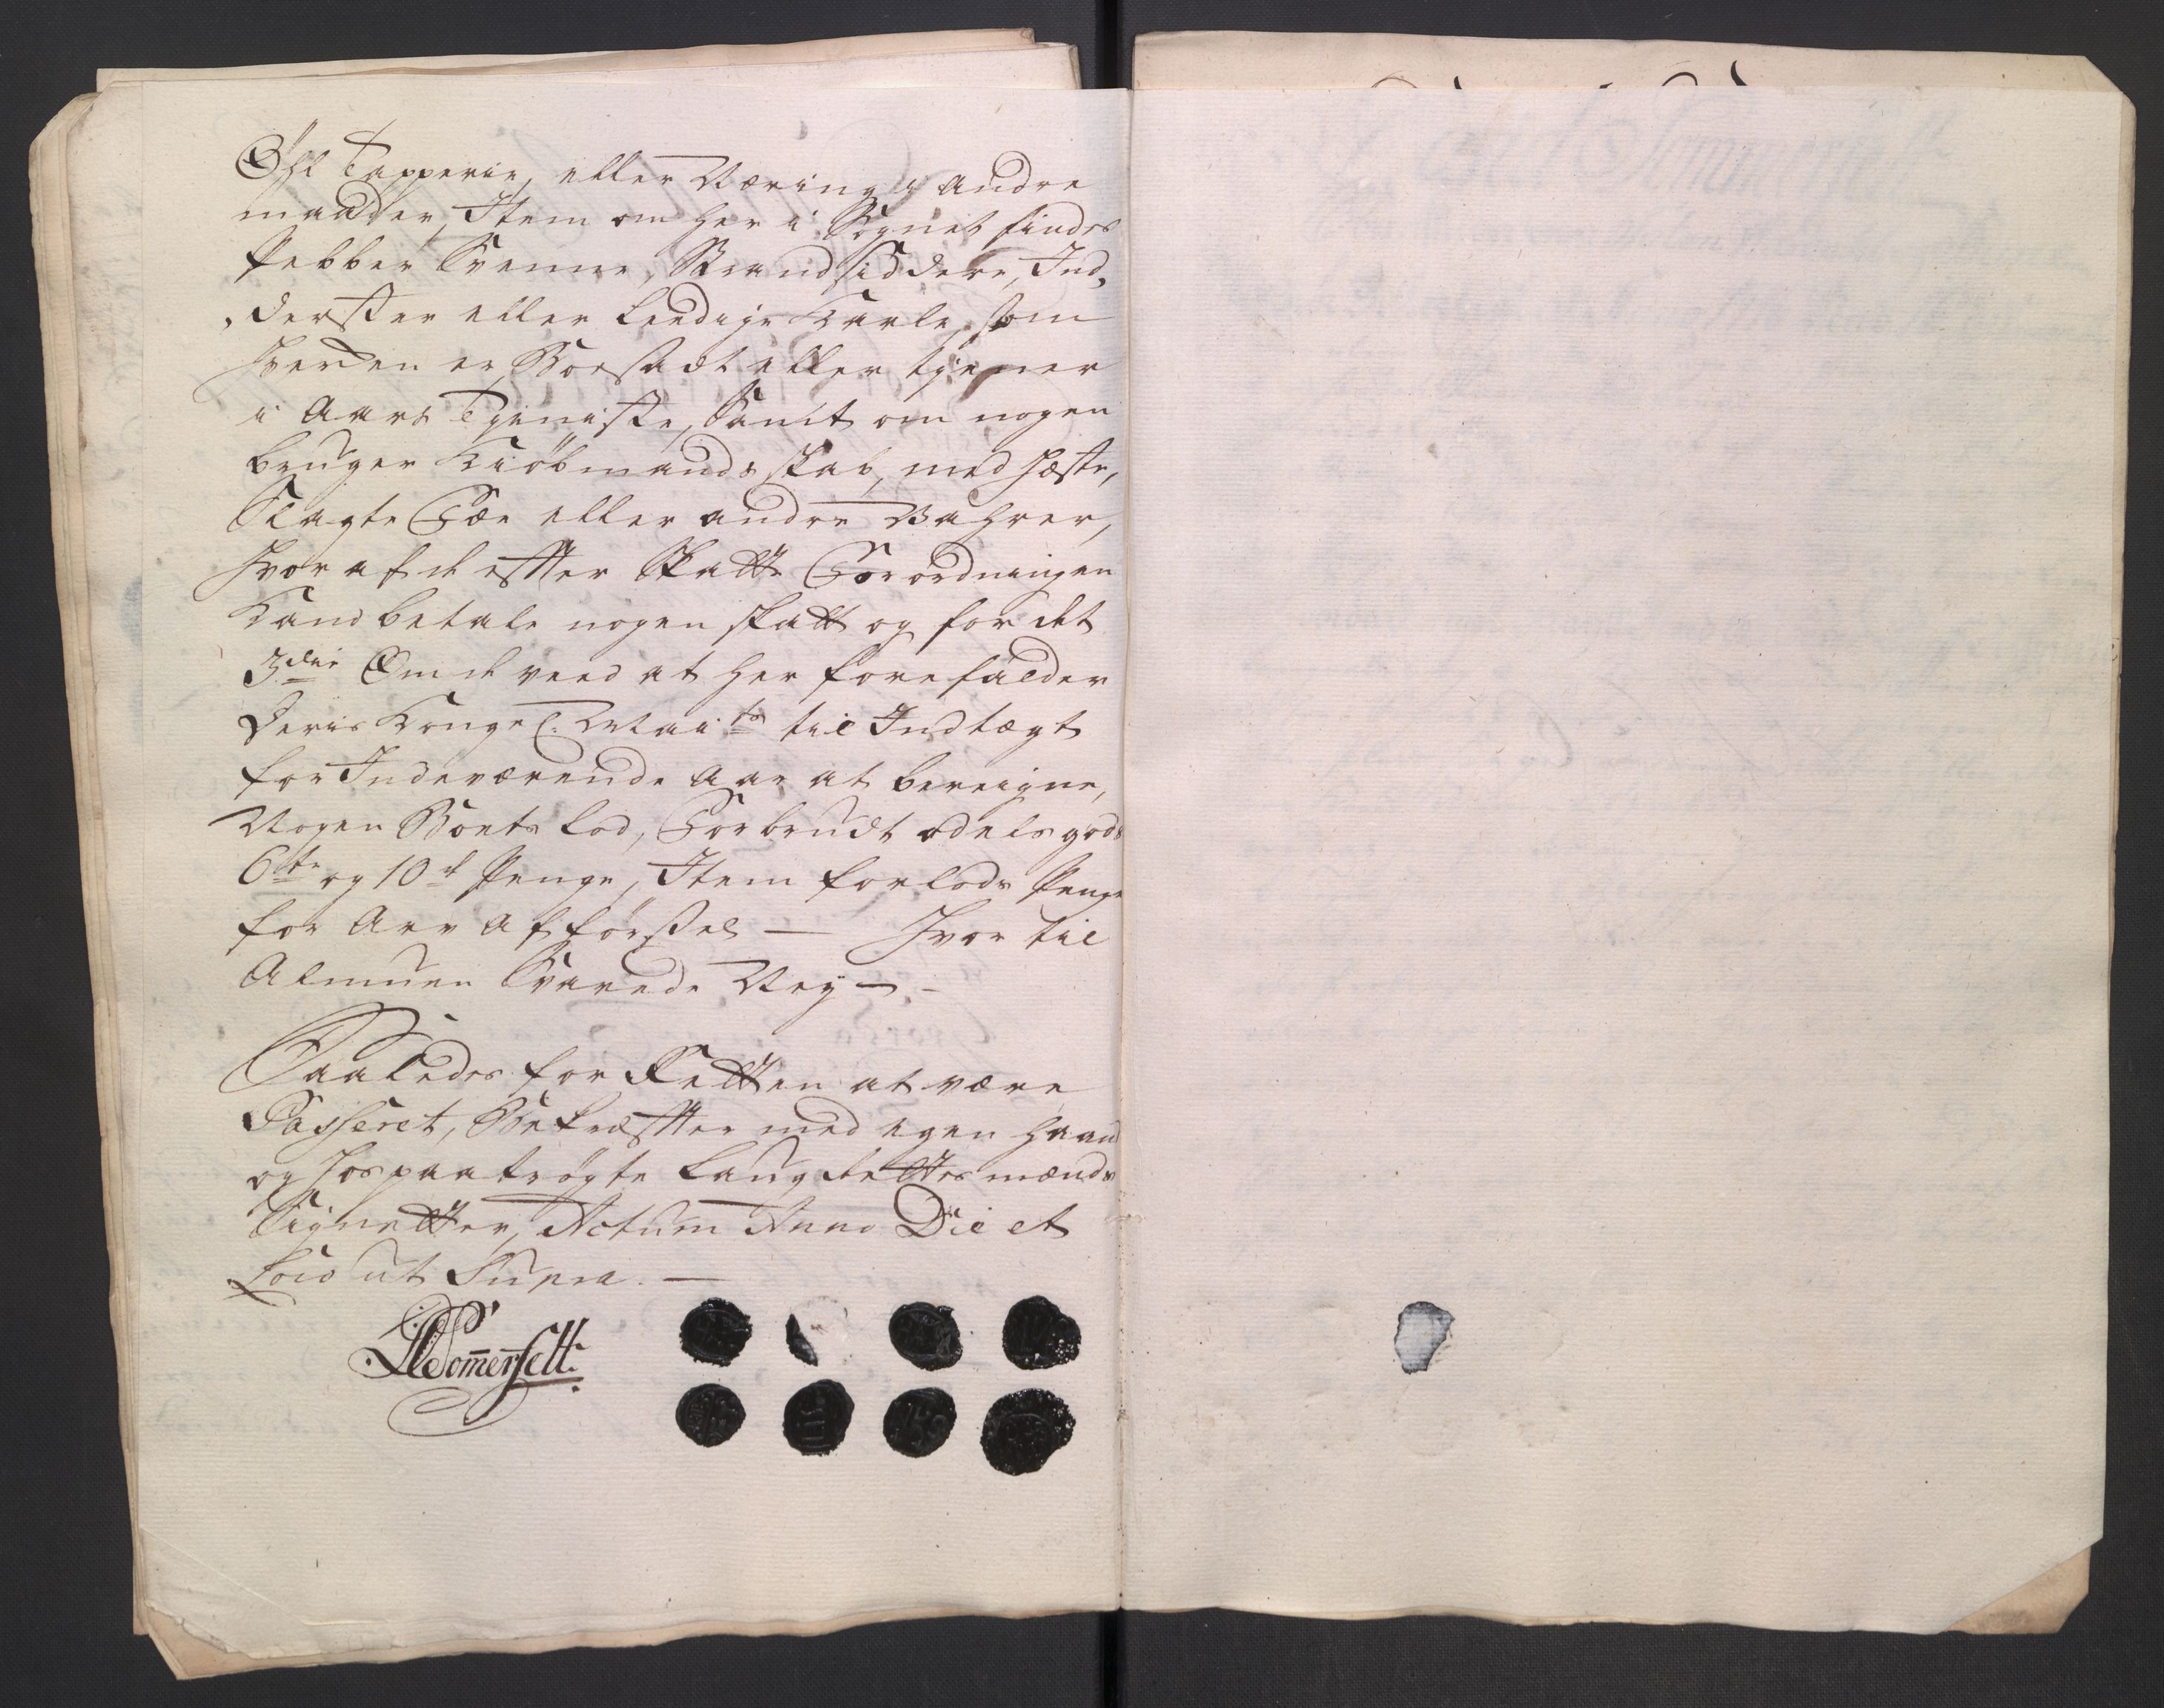 Øhl Tapperie, eller Næring i Andre
maader, Item om her i Sognet findes
Pebber Svenne, Strandsiddere, Ind„
„derster eller Leedige Karle, som
hverken er Boesadt eller tjener
i Aars Tieniste, Samt om nogen
bruger Kiöbmandskab, med Hæste,
Slagte Fæe eller andre Wahrer,
hvor af de effter Skatte Forordningen
Kand betale nogen skatt og for det
3die Om de veed at her forefalder
Deris Kongel: Maits til Indtægt
for Indeværende Aar at bereigne,
Nogen Boets Lod, Forbrudt odelsgods
6te og 10de Penge, Item forlods Penge
for Arv Afførsel — Hvor til
Almuen Svarede Ney —
Saaledes for Retten at være
Passeret, Bekræffter med egen Haand
og Hos paatrögte Laugrettesmænds
Signetter, Actum Anno Die et
Loco ut Supra. —
Somerfelt